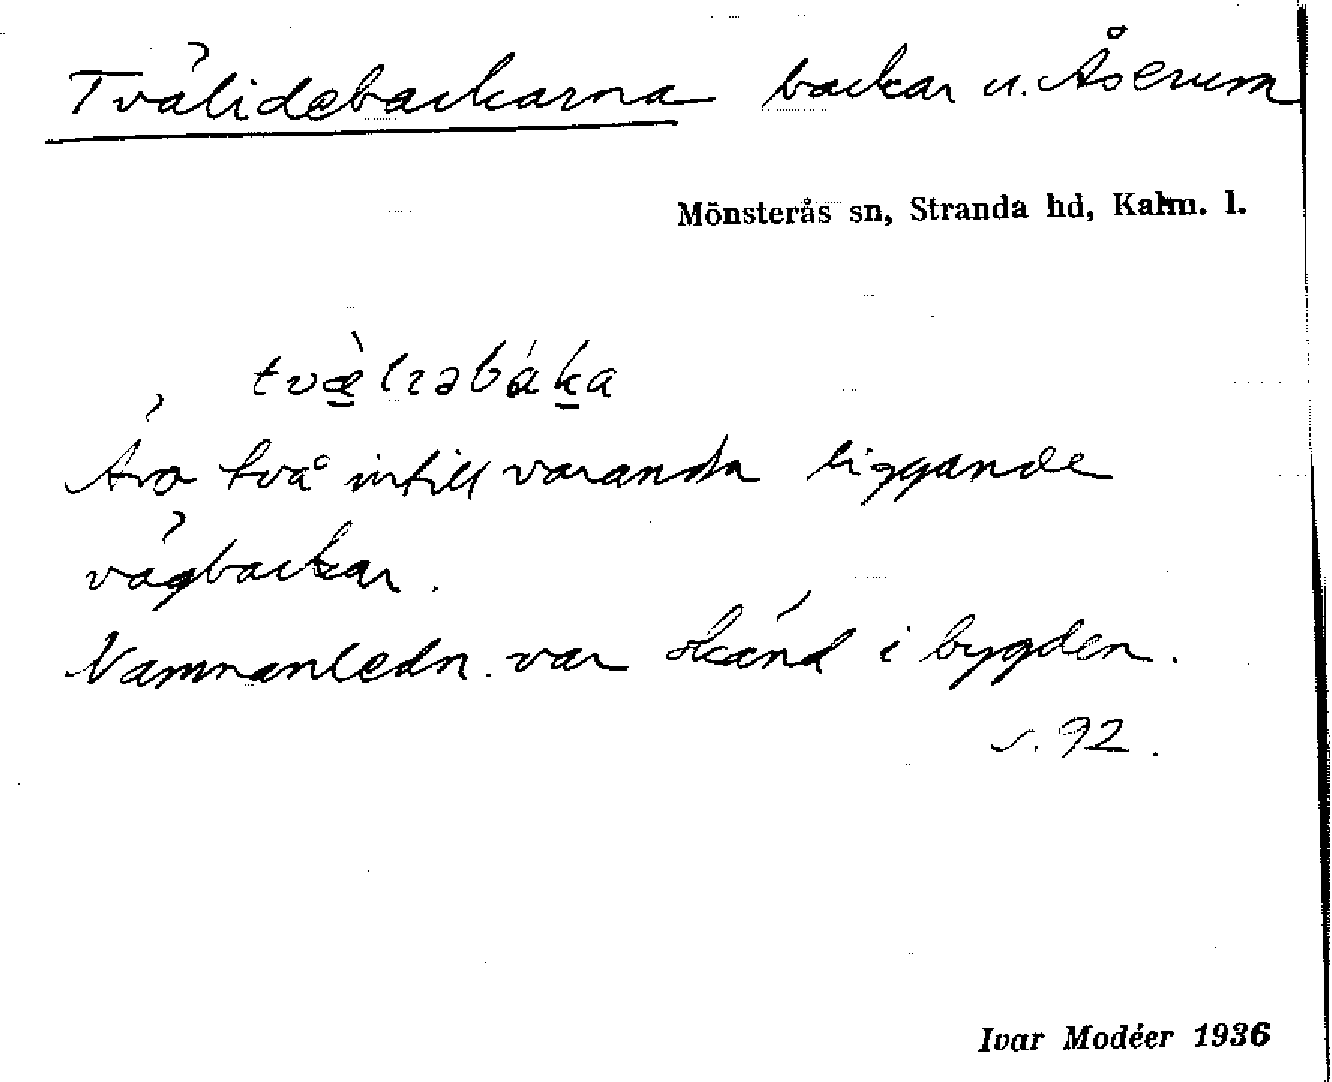 Tvälidebackarna backar u. Åserum
Mönsterås sn, Stranda hd, Kalm. l.
tvæ̀lıəbákа
Äro två intill varandra liggande
vägbackar.
Namnanledn. var okänd i bygden.
s. 92.
Ivar Modéer 1936